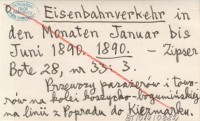 Eisenbahnverkehr in
den Monaten Januar bis
Juni 1890. 1890. – Zipser
Bote 28, nr 33. 3.
Przewozy pasażerów i towa-
rów na kolei koszycko-bogumińskiej
na linii z Popradu do Kieżmarku.